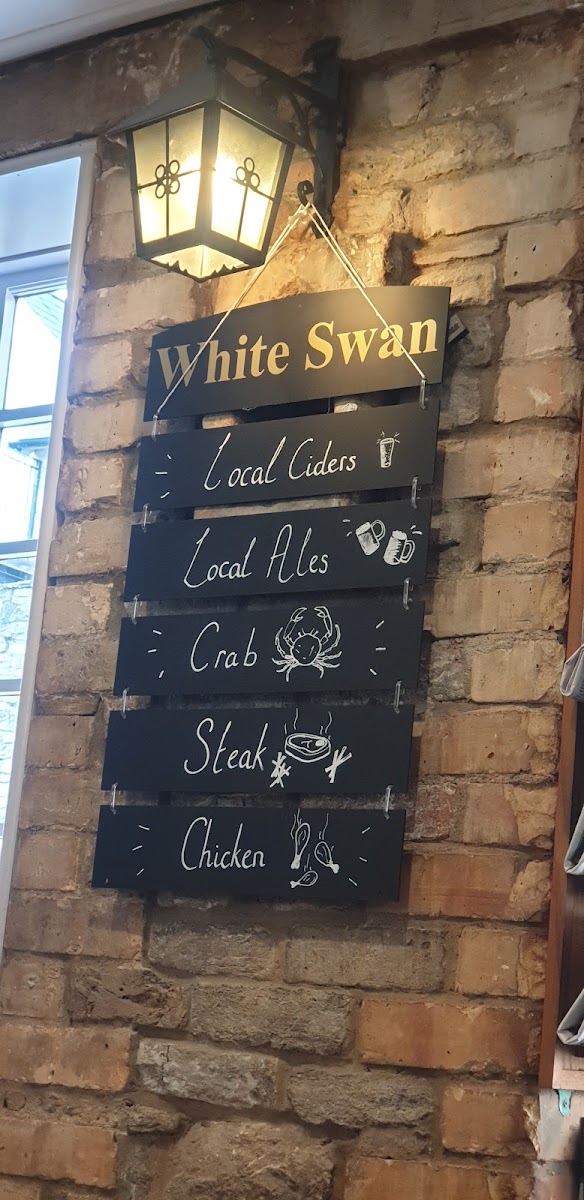 White Swan
Local Ciders
Local Ales
Crab
Steak
Chicken